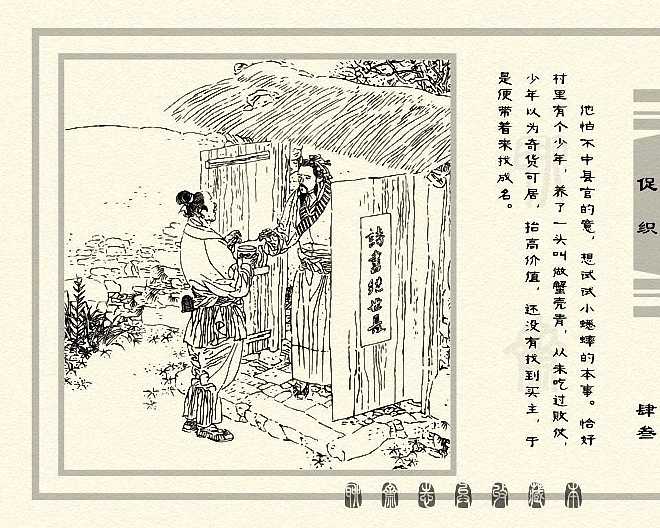 促织
他怕不中县官的意，想试试小蟋蟀的本事。恰好
村里有个少年，养了一头叫做蟹壳青，从未吃过败仗，
少年以为奇货可居，抬高价值，还没有找到买主，于
是便带着来找成名。
诗书继世长
肆叁
聊斋志异收藏本